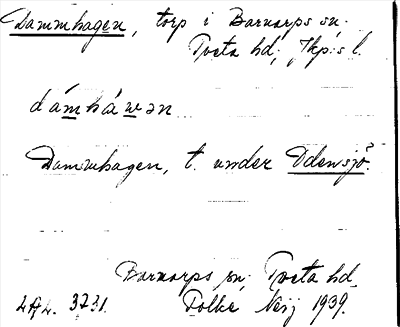 Dammhagen, torp i Barnarps sn.
Tveta hd, Jkp:s l.
dámháwən
Dammhagen, t. under Odensjö.
Barnarps sn, Tveta hd.
LAL. 3731. Folke Neij 1939.